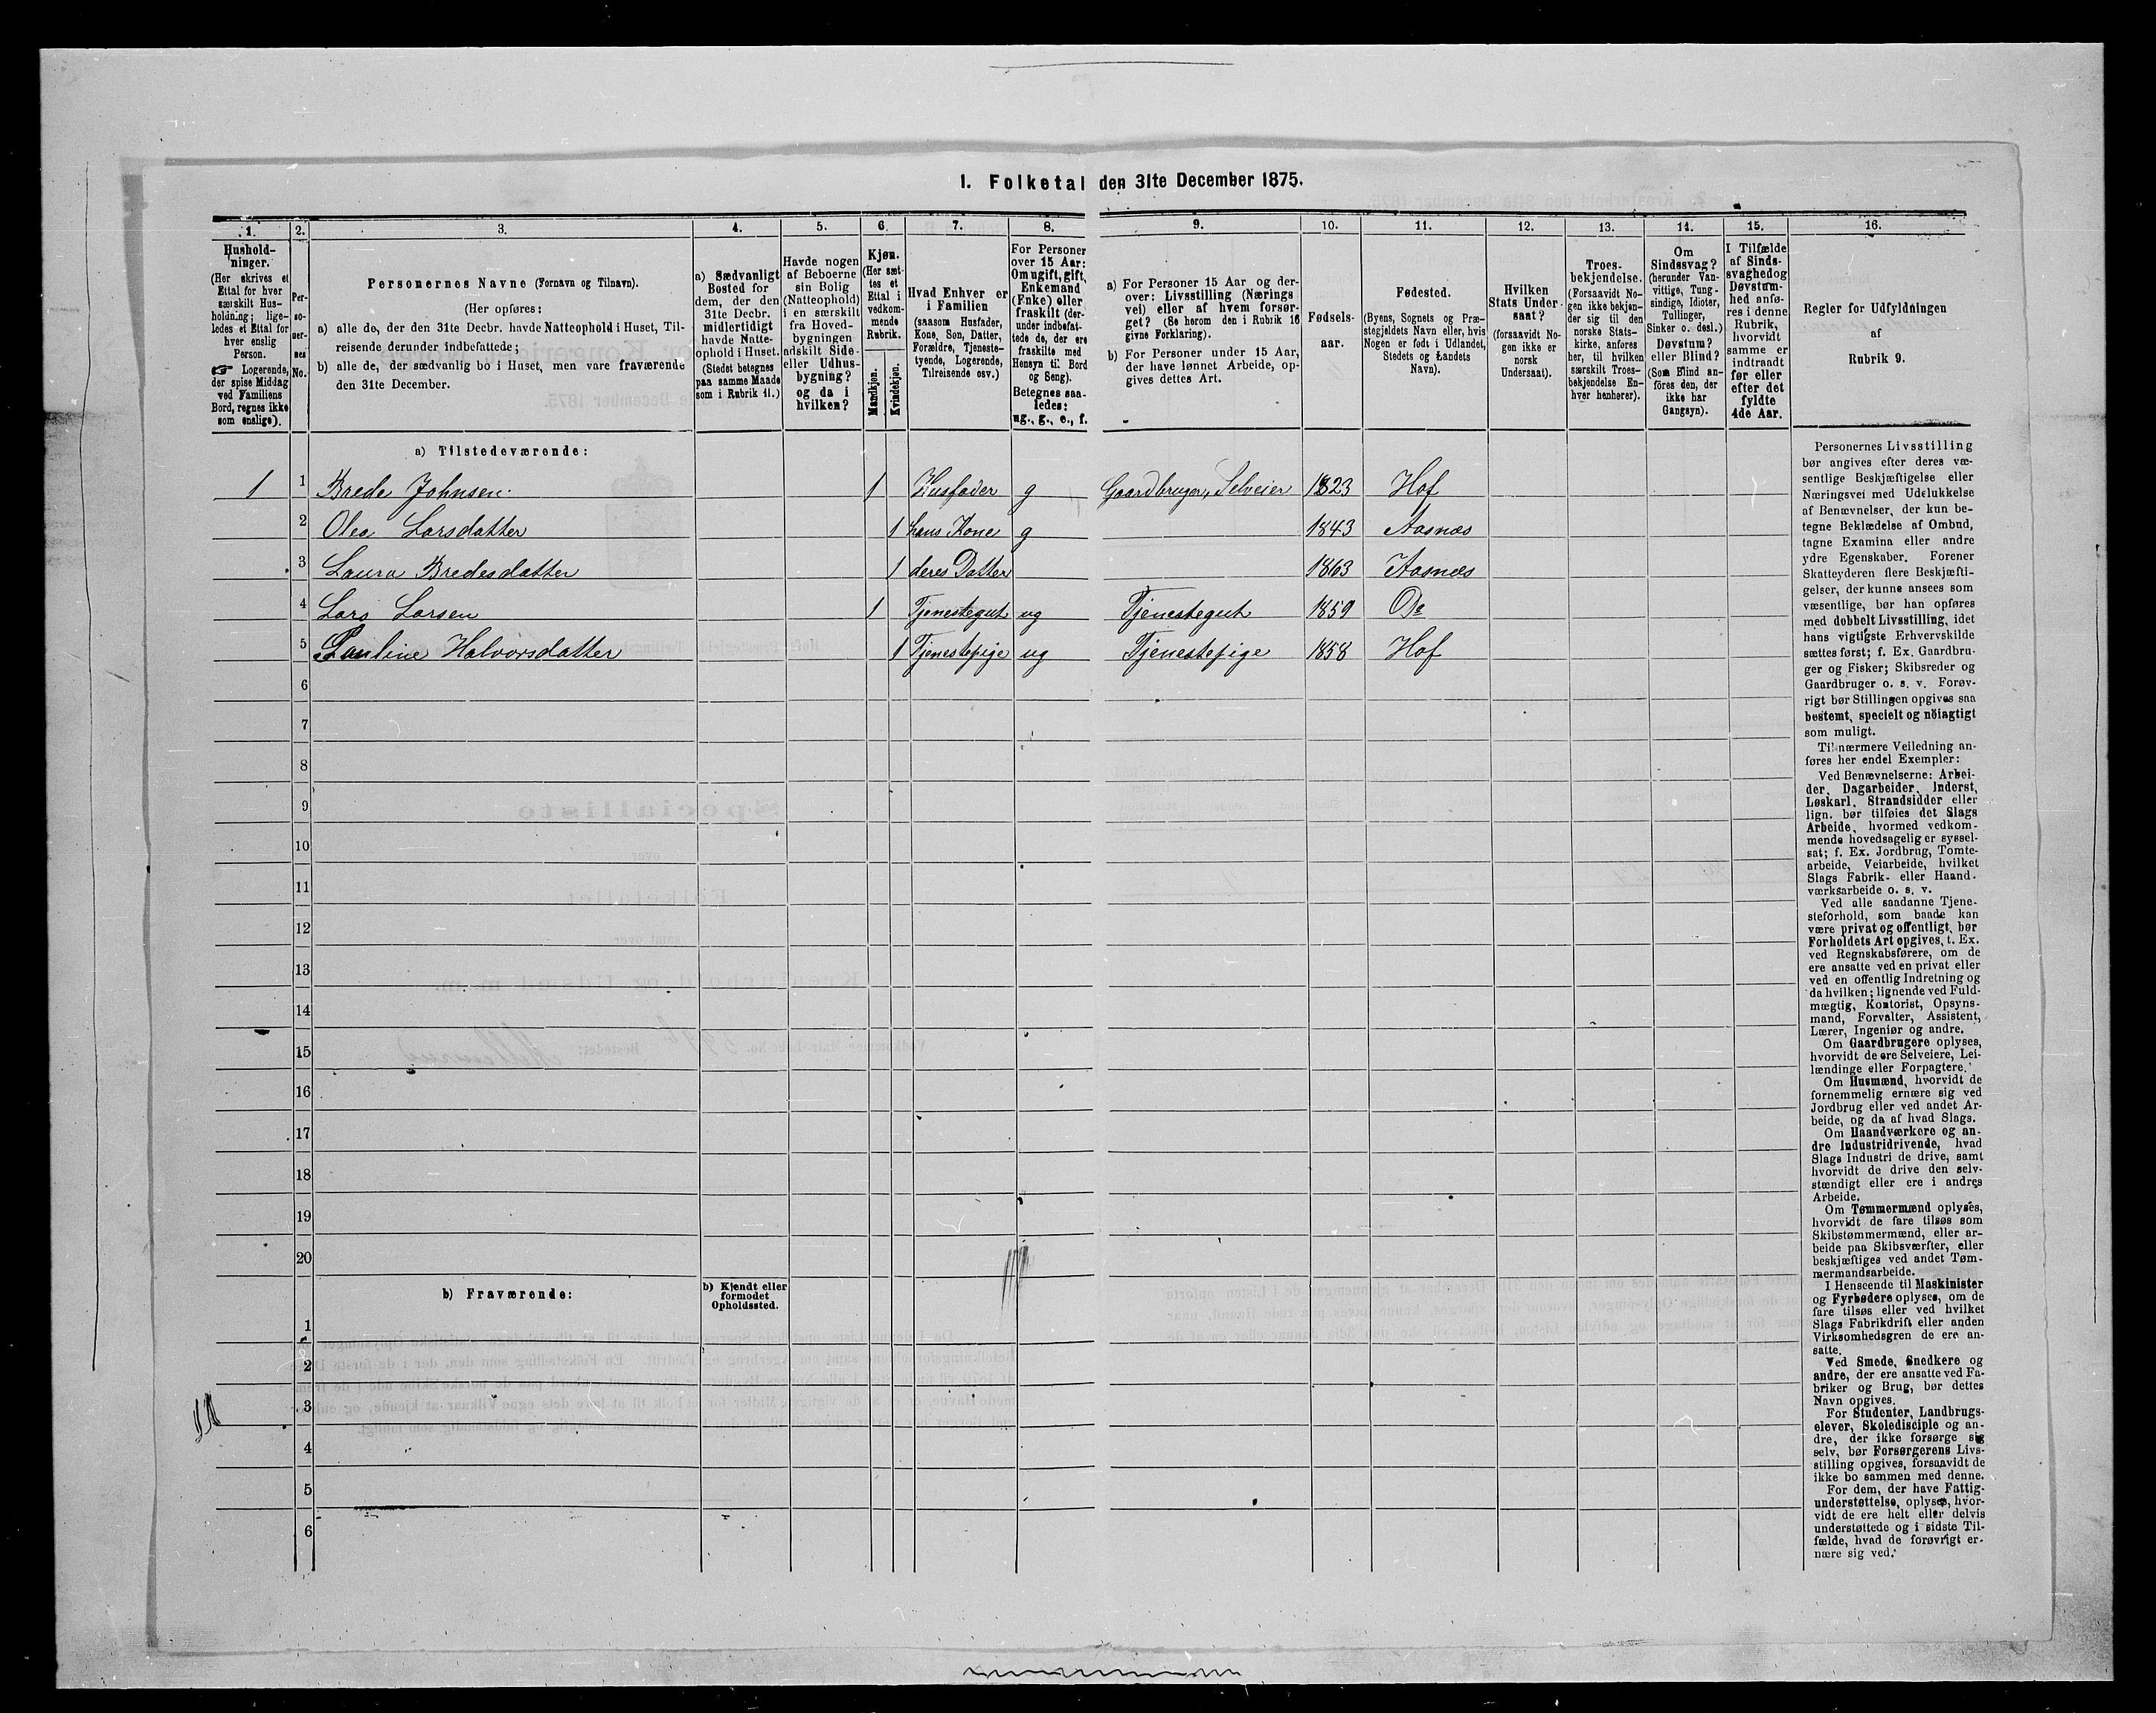 I. Folketal den 31te December 1875.
1. 2. 3. 4. 5. 6. 7. 8. 9. 10. 11. 12. 13. 14. 15. 16.
Hushold-
ninger.
(Her skrives et
Ettal for hver
særskilt Hus-
holdning; lige-
ledes et Ettal for
hver enslig
Person.
☞ Logerende,
der spise Middag
ved Familiens
Bord, regnes ikke
som enslige).
Per-
so-
ner-
nes
No.
Personernes Navne (Fornavn og Tilnavn).
(Her opføres:
a) alle de, der den 31te Decbr. havde Natteophold i Huset, Til-
reisende derunder indbefattede;
b) alle de, der sædvanlig bo i Huset, men vare fraværende
den 31te December.
a) Sædvanligt
Bosted for
dem, der den
31te Decbr.
midlertidigt
havde Natte-
ophold i Huset.
(Stedet betegnes
paa samme Maade
som i Rubrik 11.)
Havde nogen
af Beboerne
sin Bolig
(Natteophold)
i en særskilt
fra Hoved-
bygningen
adskilt Side-
eller Udhus-
bygning?
og da i
hvilken?
Kjøn.
(Her sæt-
tes et
Ettal i
vedkom-
mende
Rubrik.
Mandkjøn.
Kvindekjøn.
Hvad Enhver er
i Familien
(saasom Husfader,
Kone, Søn, Datter,
Forældre, Tjeneste-
tyende, Logerende,
Tilreisende osv.)
For Personer
over 15 Aar:
Om ugift, gift,
Enkemand
(Enke) eller
fraskilt (der-
under indbefat-
tede de, der ere
fraskilte med
Hensyn til Bord
og Seng).
Betegnes saa-
ledes:
ug., g., e., f.
a) For Personer 15 Aar og der-
over: Livsstilling (Nærings
vei) eller af hvem forsør-
get? (Se herom den i Rubrik 16
givne Forklaring).
b) For Personer under 15 Aar,
der have lønnet Arbeide, op-
gives dettes Art.
Fødsels-
aar.
Fødested.
(Byens, Sognets og Præ-
stegjeldets Navn eller, hvis
Nogen er født i Udlandet,
Stedets og Landets
Navn).
Hvilken
Stats Under-
saat?
(forsaavidt No-
gen ikke er
norsk
Undersaat).
Troes-
bekjendelse.
(Forsaavidt No-
gen ikke bekjen-
der sig til den
norske Stats-
kirke, anføres
her, til hvilken
særskilt Troes-
bekjendelse En-
hver henhører).
Om
Sindssvag?
(herunder Van-
vittige, Tung-
sindige, Idioter,
Tullinger,
Sinker o. desl.)
Døvstum?
eller Blind?
(Som Blind an-
føres den, der
ikke har
Gangsyn).
I Tilfælde
af Sinds-
svaghed og
Døvstum-
hed anfø-
res i denne
Rubrik,
hvorvidt
samme er
indtraadt
før eller
efter det
fyldte
4de Aar.
Regler for Udfyldningen
af
Rubrik 9.
a) Tilstedeværende:
1 1 Brede Johnsen. 1 Husfader g Gaardbruger, Selveier 1823 Hof
2 Olea Larsdatter 1 hans Kone g 1843 Aasnæs
3 Laura Bredesdatter 1 deres Datter 1863 Aasnæs
4 Lars Larsen 1 Tjenestegut ug Tjenestegut 1859 Do
5 Pauline Halvorsdatter 1 Tjenestepige ug Tjenestepige 1858 Hof
6
7
8
9
10
11
12
13
14
15
16
17
18
19
20
b) Fraværende:
b) Kjendt eller
formodet
Opholdssted.
1
2
3
4
5
6
Personernes Livsstilling
bør angives efter deres væ-
sentlige Beskjæftigelse eller
Næringsvei med Udelukkelse
af Benævnelser, der kun be-
tegne Beklædelse af Ombud,
tagne Examina eller andre
ydre Egenskaber. Forener
Skatteyderen flere Beskjæfti-
gelser, der kunne ansees som
væsentlige, bør han opføres
med dobbelt Livsstilling, idet
hans vigtigste Erhvervskilde
sættes først; f. Ex. Gaardbru-
ger og Fisker; Skibsreder og
Gaardbruger o. s. v. Forøv-
rigt bør Stillingen opgives saa
bestemt, specielt og nøiagtigt
som muligt.
Til nærmere Veiledning an-
føres her endel Exempler:
Ved Benævnelserne: Arbei-
der, Dagarbeider, Inderst,
Løskarl, Strandsidder eller
lign. bør tilføies det Slags
Arbeide, hvormed vedkom-
mende hovedsagelig er syssel-
sat; f. Ex. Jordbrug, Tomte-
arbeide, Veiarbeide, hvilket
Slags Fabrik- eller Haand-
værksarbeide o. s. v.
Ved alle saadanne Tjene-
steforhold, som baade kan
være privat og offentligt, bør
Forholdets Art opgives, t. Ex.
ved Regnskabsførere, om de
ere ansatte ved en privat eller
ved en offentlig Indretning og
da hvilken; lignende ved Fuld-
mægtig, Kontorist, Opsyns-
mand, Forvalter, Assistent,
Lærer, Ingeniør og andre.
Om Gaardbrugere oplyses,
hvorvidt de ere Selveiere, Lei-
lændinge eller Forpagtere.
Om Husmænd, hvorvidt de
fornemmelig ernære sig ved
Jordbrug eller ved andet Ar-
beide, og da af hvad Slags.
Om Haandværkere og an-
dre Industridrivende, hvad
Slags Industri de drive, samt
hvorvidt de drive den selv-
stændigt eller ere i andres
Arbeide.
Om Tømmermænd oplyses,
hvorvidt de fare tilsøs som
Skibstømmermænd, eller ar-
beide paa Skibsværfter, eller
beskjæftiges ved andet Tøm-
mermandsarbeide.
I Henseende til Maskinister
og Fyrbødere oplyses, om de
fare tilsøs eller ved hvilket
Slags Fabrikdrift eller anden
Virksomhedsgren de ere an-
satte.
Ved Smede, Snedkere og
andre, der ere ansatte ved Fa-
briker og Brug, bør dettes
Navn opgives.
For Studenter, Landbrugs-
elever, Skoledisciple og an-
dre, der ikke forsørge sig
selv, bør Forsørgerens Livs-
stilling opgives, forsaavidt de
ikke bo sammen med denne.
For dem, der have Fattig-
understøttelse, oplyses, hvor-
vidt de ere helt eller delvis
understøttede og i sidste Til-
fælde, hvad de forøvrigt er-
nære sig ved.